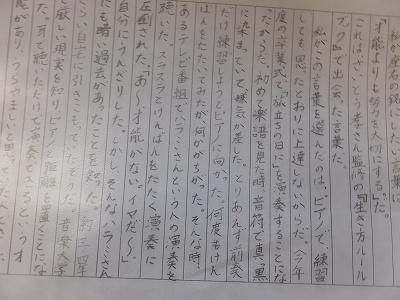 私が座右の銘にしたい言葉は
「才能よりも努力を大切にする」だ。
これはさいとう孝さん監修の「生き方ルール
ブック」で出会った言葉だ。
私がこの言葉を選んだのは、ピアノで、練習
しても思ったとおりに上達しないからだ。今年
度の卒業式で「旅立ちの日に」を演奏することにな
ったからだ。初めて楽譜を見た時、音符で真っ黒
に染まっていて、嫌気が差した。とりあえず前奏
だけ練習しようとピアノに向かった。何度もけん
ばんをたたいてみたが何かがちがった。そんな時、
あるテレビ番組でハラミさんという人の演奏を
聴いた。スラスラとけんばんをたたく演奏に
圧倒された。「あ〜才能がない、イマだ〜」
自分にうんざりした。しかし、そんなハラミさん
にも暗い過去があったことを知った。約三、四年
くらい自宅に引きこもってたそうだ。音楽大学
で厳しい現実を知り、ピアノと距離を置くことにな
った。耳で聴いただけで演奏できるというオ
能があり、うらやましいと思っていた